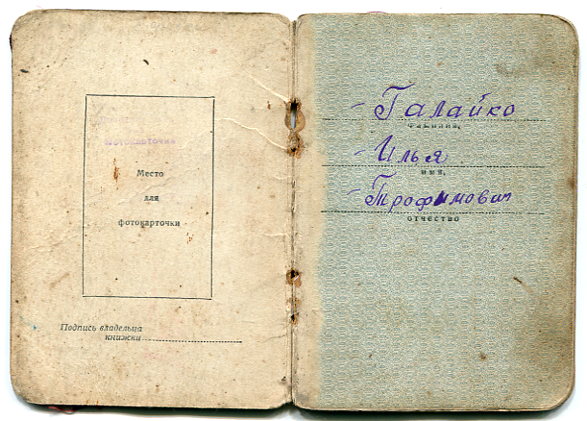 фотокарточки
Место
для
фотокарточки
Подпись владельца
книжки
- Галайко
фамилия,
- Илья
имя,
- Трофимович
отчество